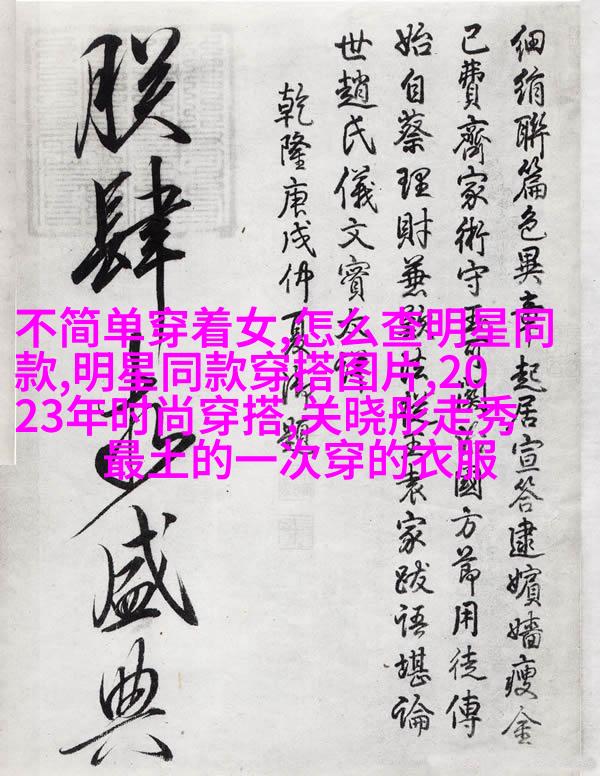 細絹聯篇色異章起居宣答逮嬪嬙瘦金
已費齊家術守國方節用徒傳
始自蔡理財兼袁家跋語堪論
世趙氏儀文賓友
乾隆庚戌仲夏御題
朕肆盛典
不简单穿着女,怎么查明星同
款,明星同款穿搭图片,20
23年时尚穿搭,关晓彤走秀
最土的一次穿的衣服